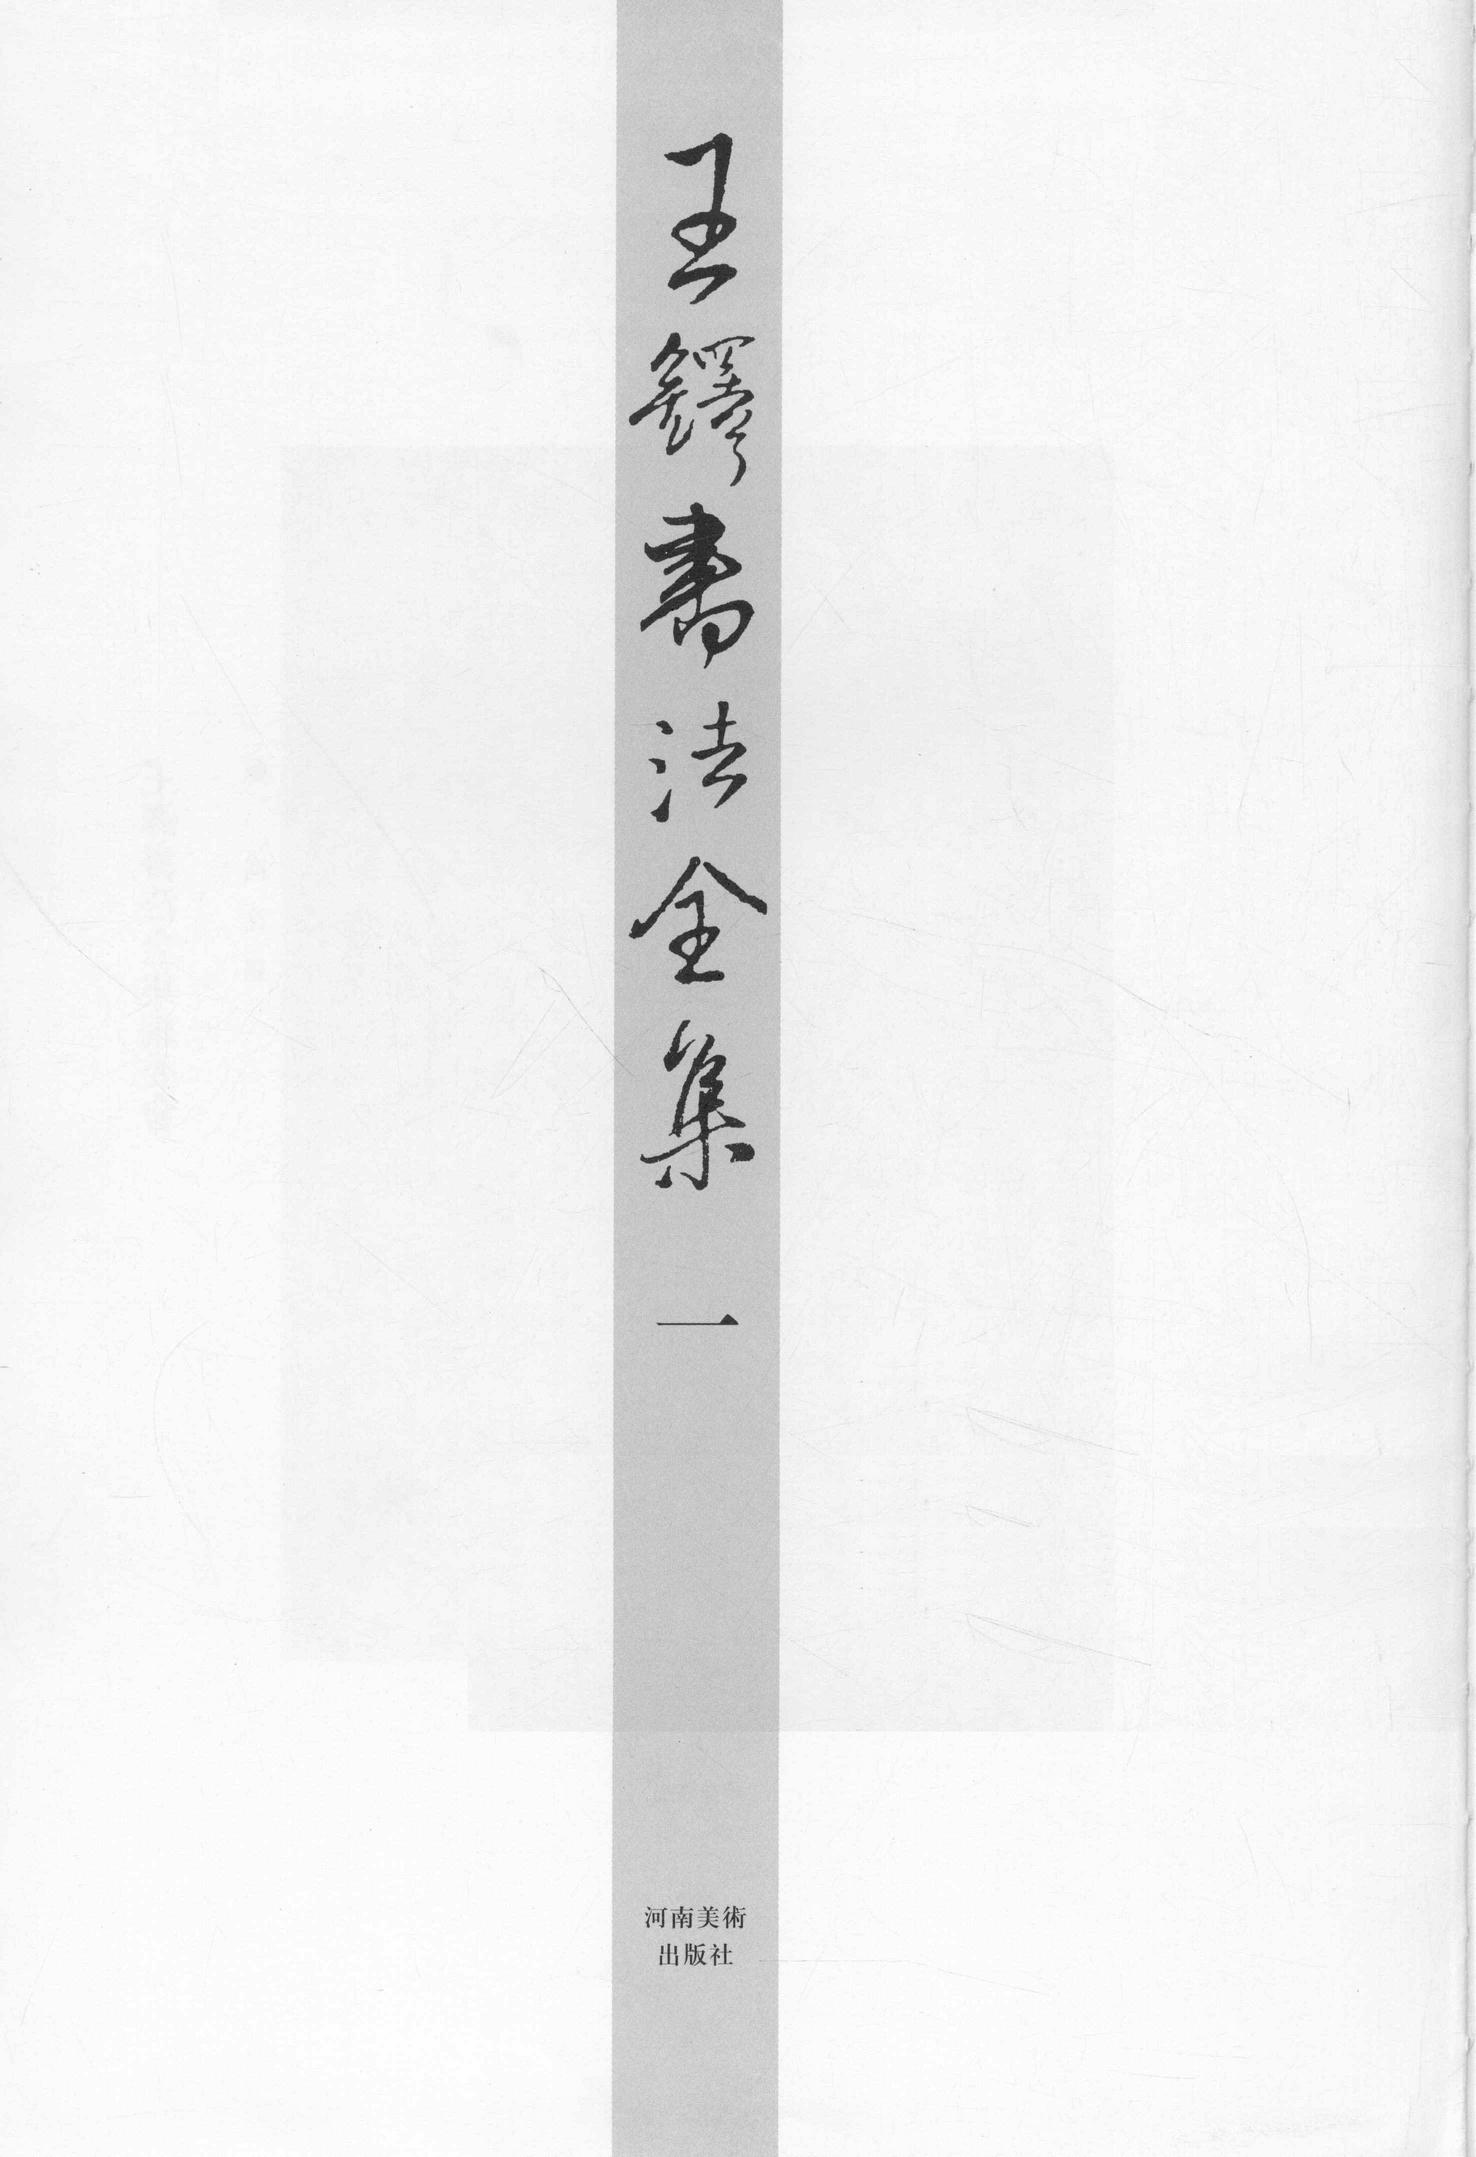 王鐸書法全集
一
河南美術
出版社